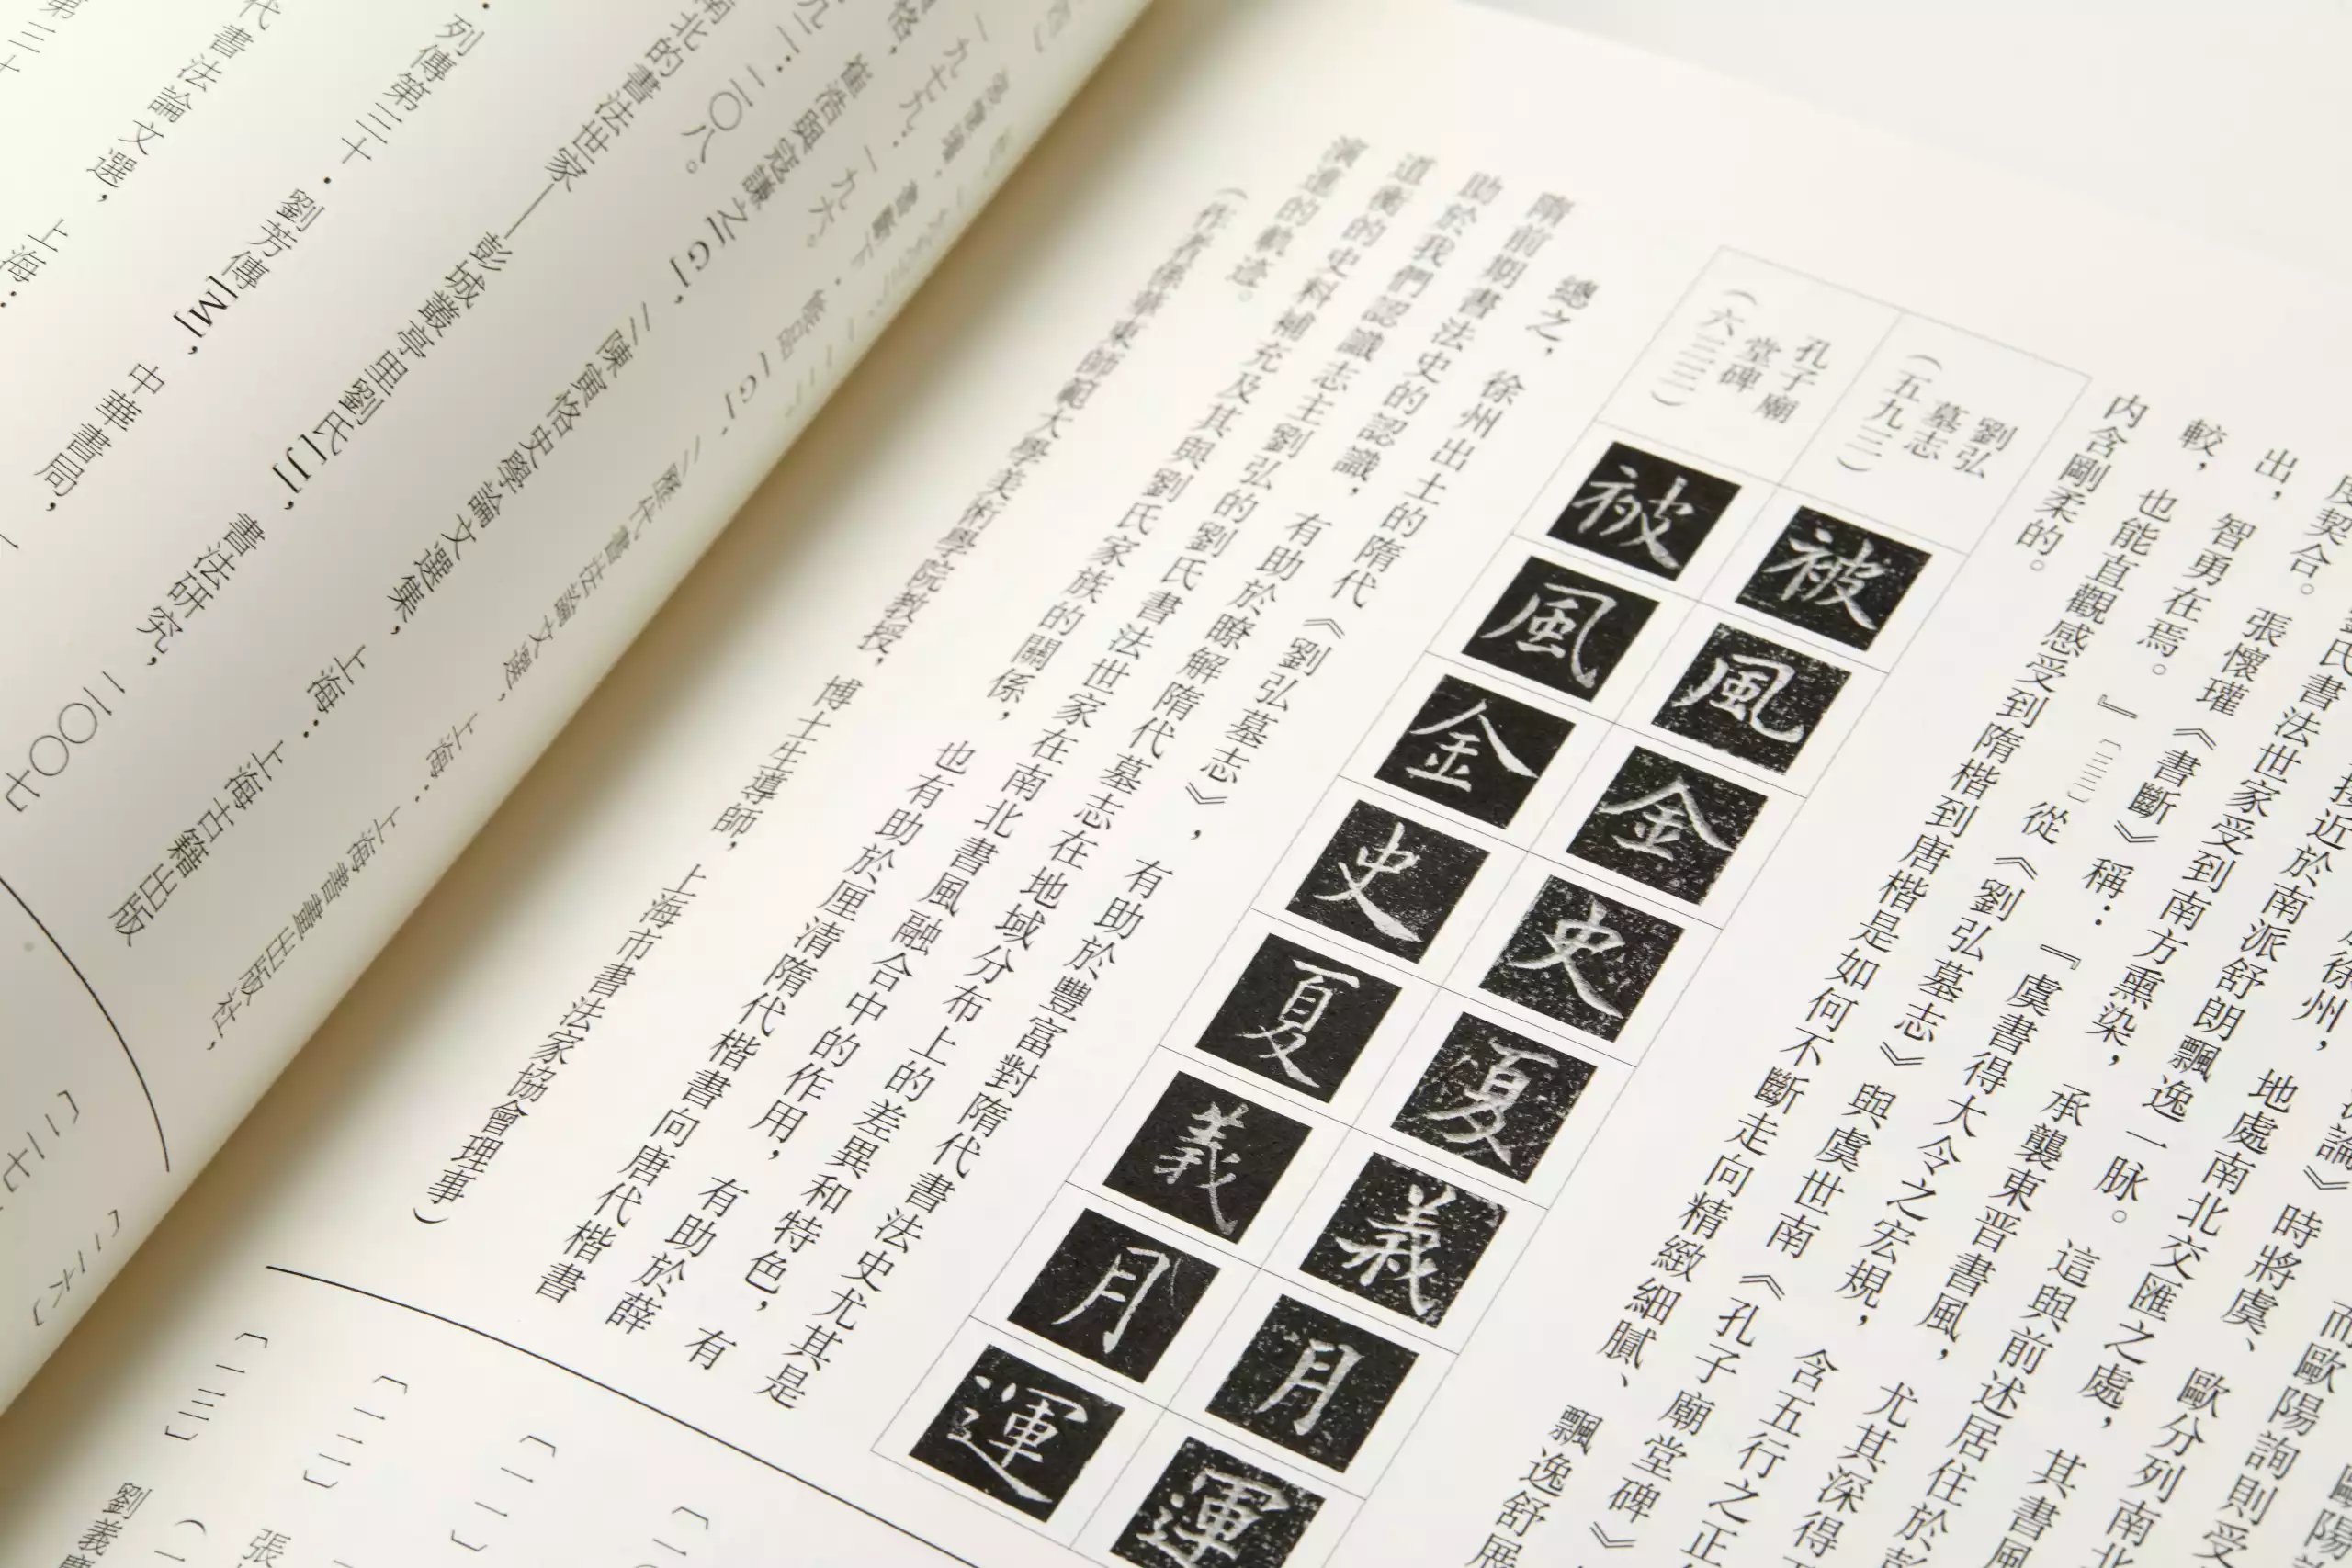 而歐陽詢則受
論》時將虞、歐分列南北
徐州，地處南北交匯之處，其書風
接近於南派舒朗飄逸一脉。這與前述居住於彭
劉氏書法世家受到南方熏染，承襲東晋書風，尤其深得
度契合。張懷瓘《書斷》稱：『虞書得大令之宏規，含五行之正
出，智勇在焉。』〔二三〕從《劉弘墓志》與虞世南《孔子廟堂碑》
較，也能直觀感受到隋楷到唐楷是如何不斷走向精緻細膩、飄逸舒展
内含剛柔的。
劉弘墓志（五九三）
被風金史夏義月運
孔子廟堂碑（六三三）
被風金史夏義月運
總之，徐州出土的隋代《劉弘墓志》，有助於豐富對隋代書法史尤其是
隋前期書法史的認識，有助於瞭解隋代墓志在地域分布上的差異和特色，有
助於我們認識志主劉弘的劉氏書法世家在南北書風融合中的作用，有助於薛
道衡的史料補充及其與劉氏家族的關係，也有助於厘清隋代楷書向唐代楷書
演進的軌迹。
（作者係華東師範大學美術學院教授，博士生導師，上海市書法家協會理事）
〔一二〕
〔一三〕劉義慶
[G]，//歷代書法論文選，上海：上海書畫出版社，
一九七九：一九六。
崔浩與寇謙之[G]，//陳寅恪史學論文選集，上海：上海古籍出版
九二：二〇八。
南北的書法世家——彭城叢亭里劉氏[J]，書法研究，二〇〇七
列傳第三十・劉芳傳[M]，中華書局，
代書法論文選，上海：
第三十
〔二六〕
〔二七〕